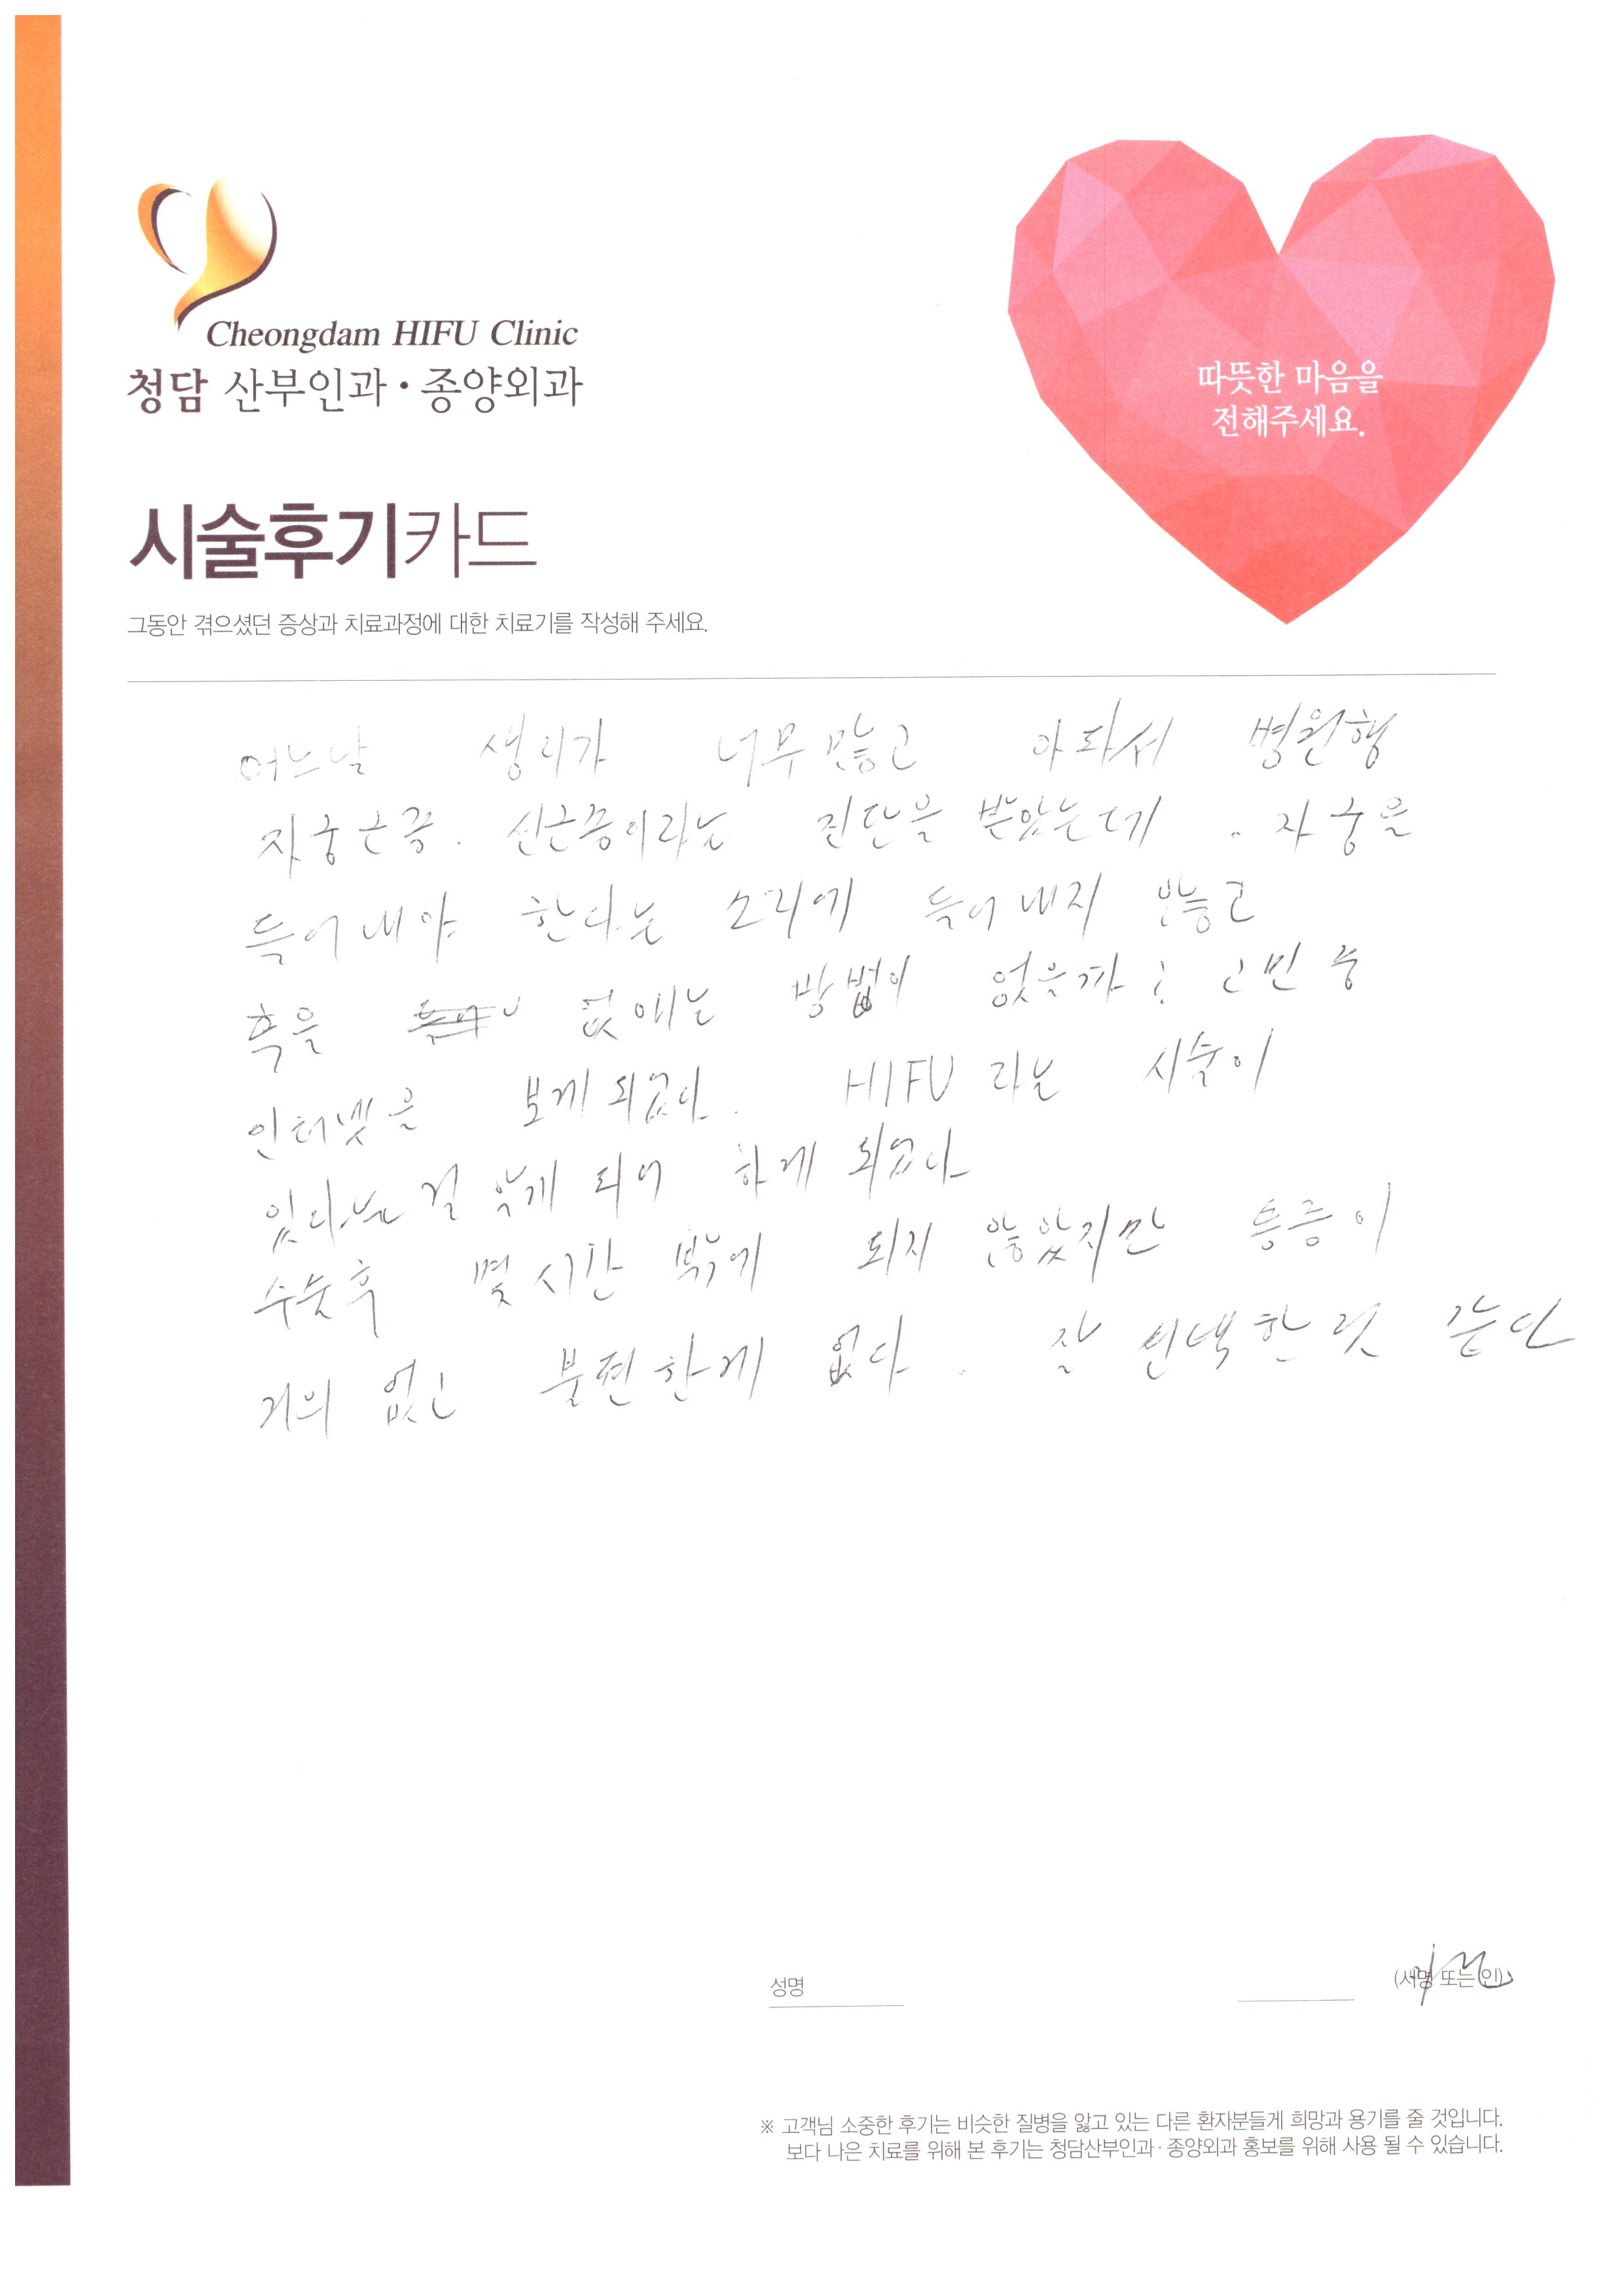 Cheongdam HIFU Clinic
청담 산부인과·종양외과
따뜻한 마음을
전해주세요.
시술후기카드
그동안 겪으셨던 증상과 치료과정에 대한 치료기를 작성해 주세요.
어느날 생리가 너무많고 아파서 병원행
자궁근종. 선근증이라는 진단을 받았는데. 자궁을
들어내야 한다는 소리에 들어내지 않고
혹을 없애는 방법이 없을까? 고민 중
인터넷을 보게되었다. HIFU 라는 시술이
있다는걸 알게 되어 하게 되었다
수술후 몇시간 밖에 되지 않았지만 통증이
거의 없고 불편한게 없다. 잘 선택한것 같다
성명
(서명 또는 인)
※ 고객님 소중한 후기는 비슷한 질병을 앓고 있는 다른 환자분들게 희망과 용기를 줄 것입니다.
보다 나은 치료를 위해 본 후기는 청담산부인과·종양외과 홍보를 위해 사용 될 수 있습니다.